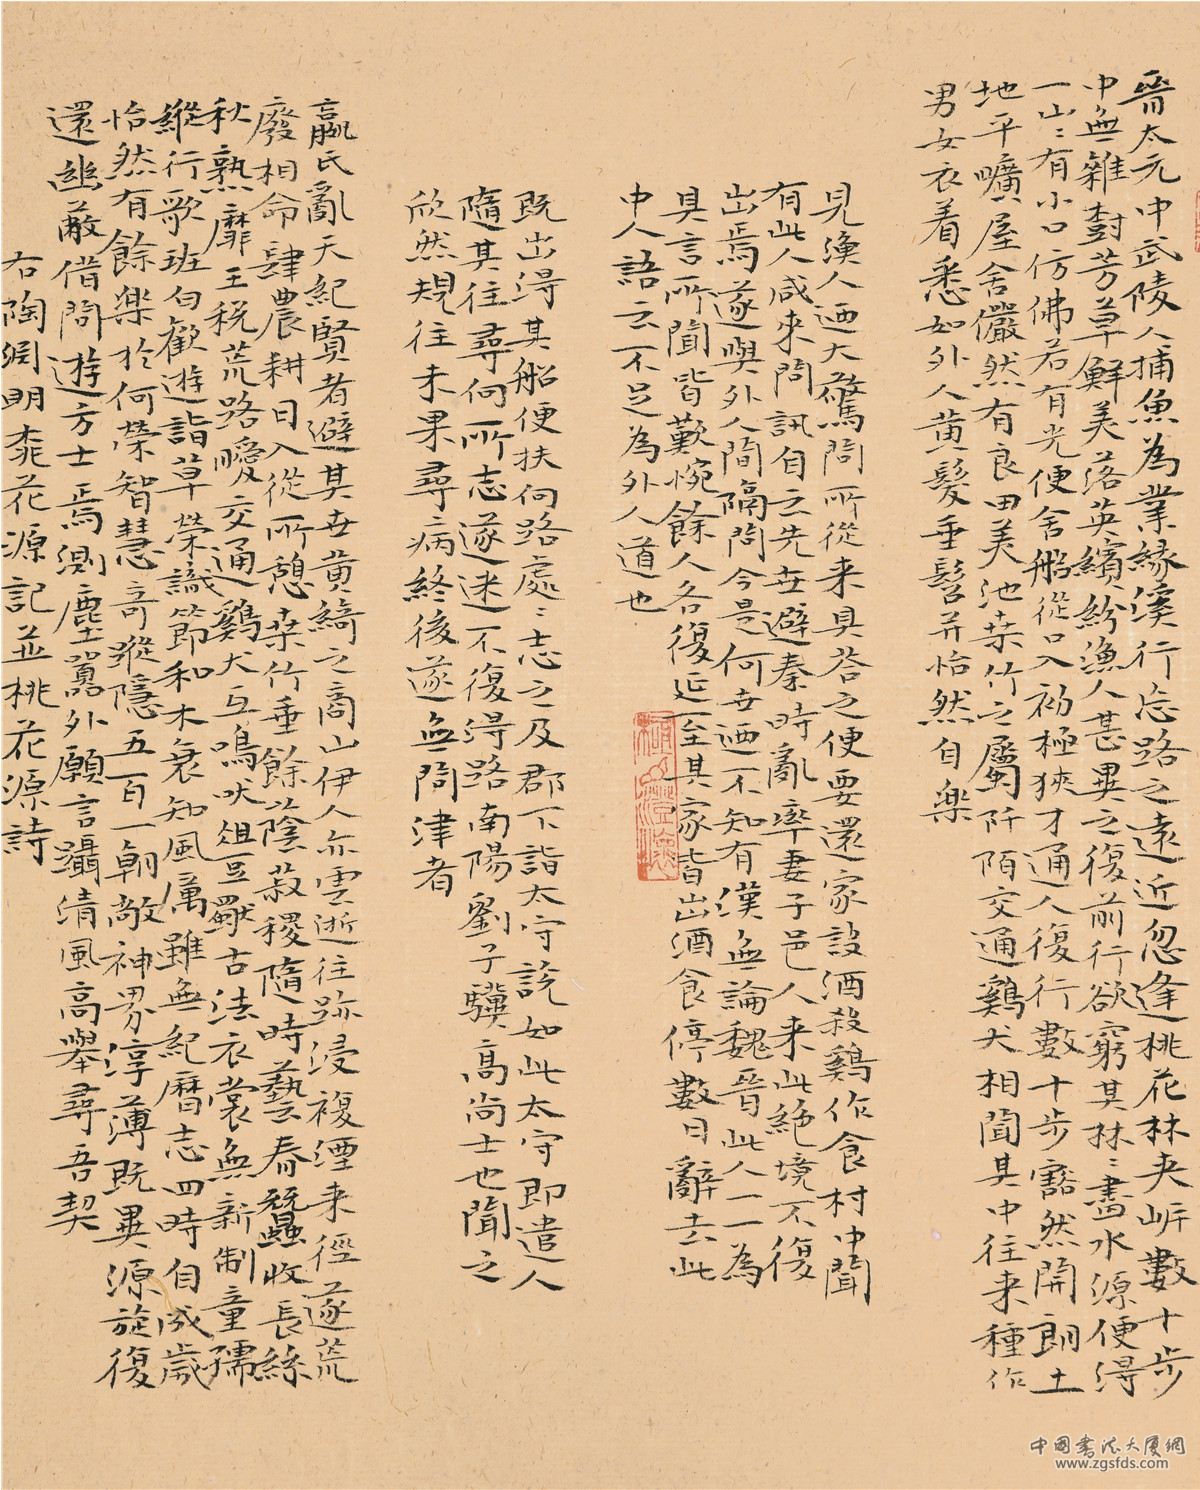 晉太元中武陵人捕魚為業緣溪行忘路之遠近忽逢桃花林夾岍數十步
中無雜樹芳草鮮美落英繽紛漁人甚異之復前行欲窮其林〻盡水源便得
一山〻有小口仿佛若有光便舍船從口入初極狹才通人復行數十步豁然開朗土
地平曠屋舍儼然有良田美池桒竹之屬阡陌交通雞犬相聞其中往来種作
男女衣着悉如外人黃髮垂髫并怡然自樂
見漁人迺大驚問所從来具荅之便要還家設酒殺鷄作食村中聞
有此人咸來問訊自云先世避秦時亂率妻子邑人来此絶境不復
出焉遂與外人間隔問今是何世迺不知有漢無論魏晉此人一一為
具言所聞皆歎惋餘人各復延至其家皆出酒食停數日辭去此
中人語云不足為外人道也
既出得其船便扶向路處〻志之及郡下詣太守說如此太守即遣人
隨其往尋向所志遂迷不復得路南陽劉子驥高尚士也聞之
欣然規往未果尋病終後遂無問津者
嬴氏亂天紀賢者避其世黃綺之商山伊人亦雲逝往跡浸複湮来徑遂荒
廢相命肆農耕日入從所憩桒竹垂餘蔭菽稷隨時藝春蠶收長絲
秋熟靡王稅荒路曖交通鷄犬互鳴吠俎豆猷古法衣裳無新制童孺
縱行歌班白歡遊詣草榮識節和木衰知風厲雖無紀曆志四時自成歲
怡然有餘樂於何榮智慧奇蹤隱五百一朝敞神界淳薄既異源旋復
還幽蔽借問遊方士焉測塵囂外願言躡清風高舉尋吾契
右陶淵明桃花源記並桃花源詩
中國書法大廈網
www.zgsfds.com